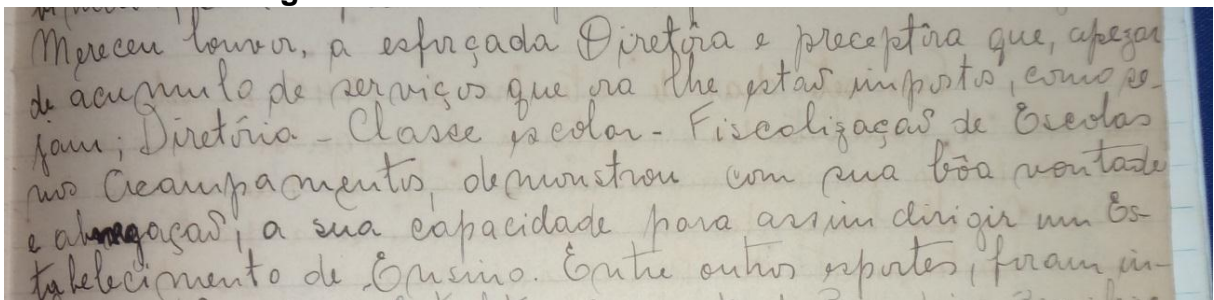 Mereceu louvor, a esforçada Diretora e preceptora que, apezar
de acumulo de serviços que ora lhe estão imposto, como se-
jam; Diretória - Classe escolar - Fiscalização de Escolas
nos Acampamentos, demonstrou com sua bôa vontade
e abnegação, a sua capacidade para assim dirigir um Es-
tabelecimento de Ensino. Entre outros esportes, foram in-